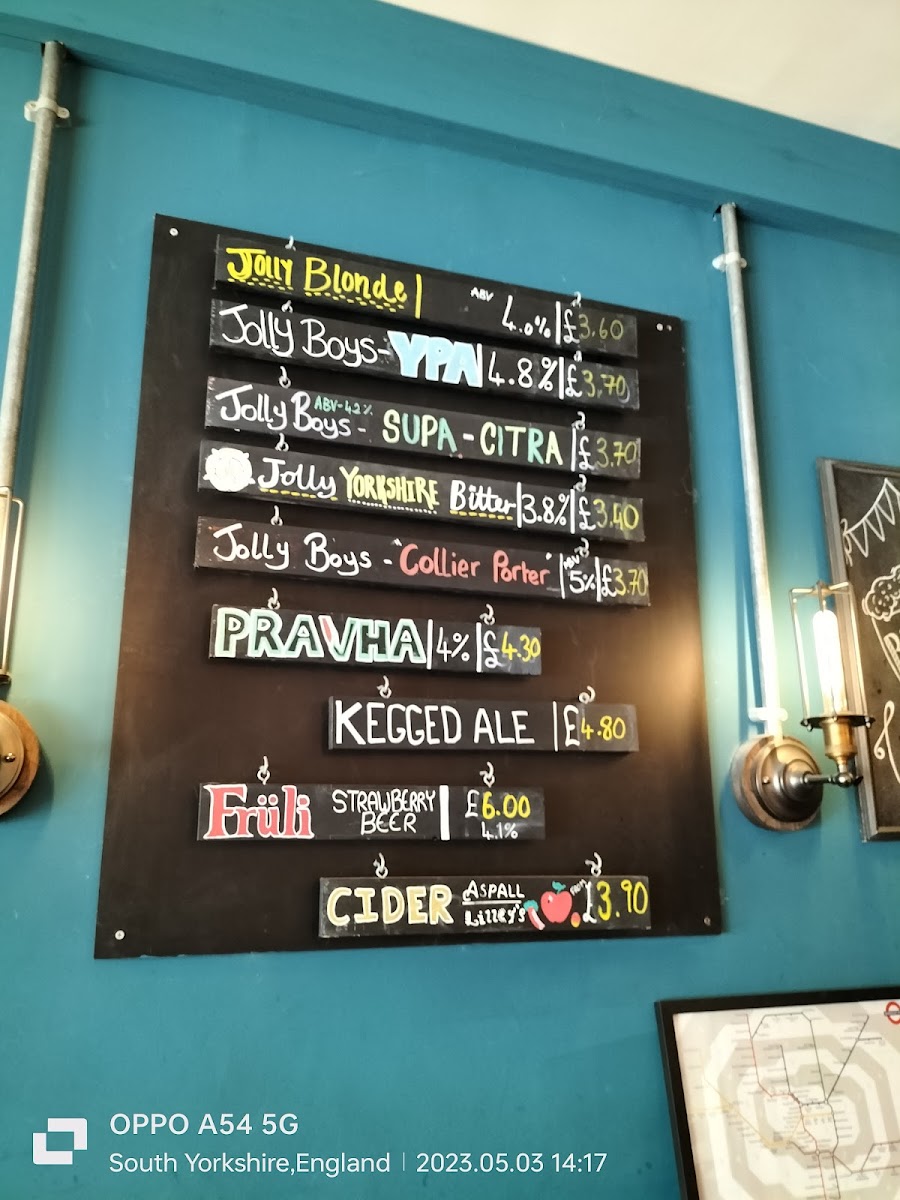 Jolly Blonde | ABV 4.0% | £3.60
Jolly Boys - YPA | 4.8% | £3.70
Jolly Boys - ABV-4.2% SUPA - CITRA | £3.70
Jolly YORKSHIRE Bitter | 3.8% | £3.40
Jolly Boys - "Collier Porter" | ABV 5% | £3.70
PRAVHA | 4% | £4.30
KEGGED ALE | £4.80
Früli STRAWBERRY BEER | £6.00
4.1%
CIDER ASPALL Lilley's FROM £3.90
OPPO A54 5G
South Yorkshire,England | 2023.05.03 14:17